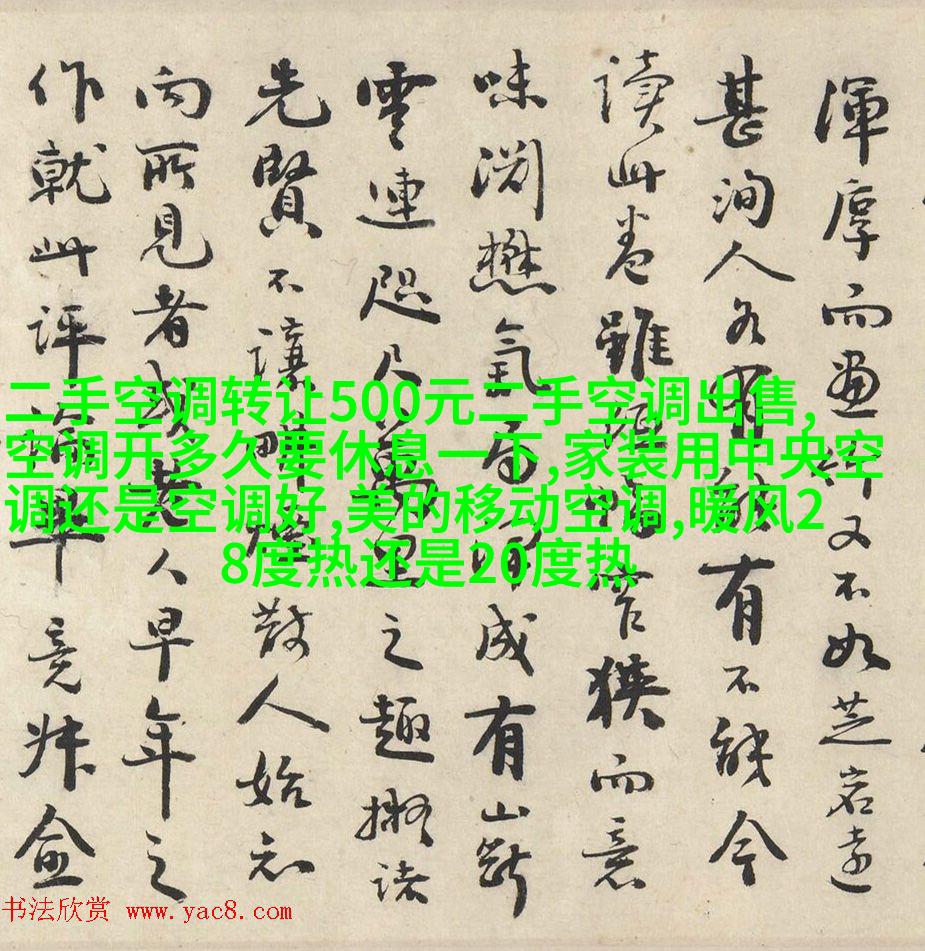 渾厚而畫又不如芝岩遠
甚洵人各有能有不能今
讀此卷雖而意
味渊懋氣成有山
雲連咫尺萬里之趣擬諸
先賢不讓散人始
向所見者或其人早年之
作就此評竟盦
二手空调转让500元二手空调出售,
空调开多久要休息一下,家装用中央空
调还是空调好,美的移动空调,暖风2
8度热还是20度热
书法欣赏 www.yac8.com